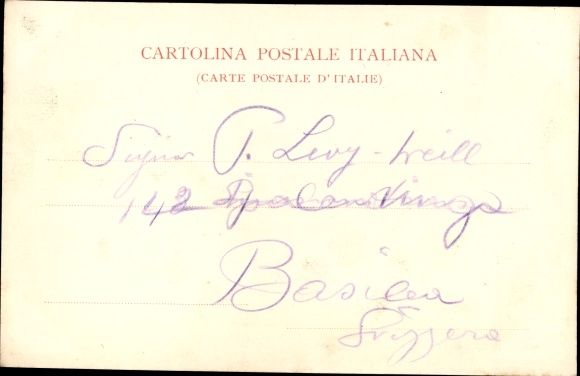 CARTOLINA POSTALE ITALIANA
(CARTE POSTALE D'ITALIE)
Signor P. Levy-Weill
142
Basilea
Svizzera